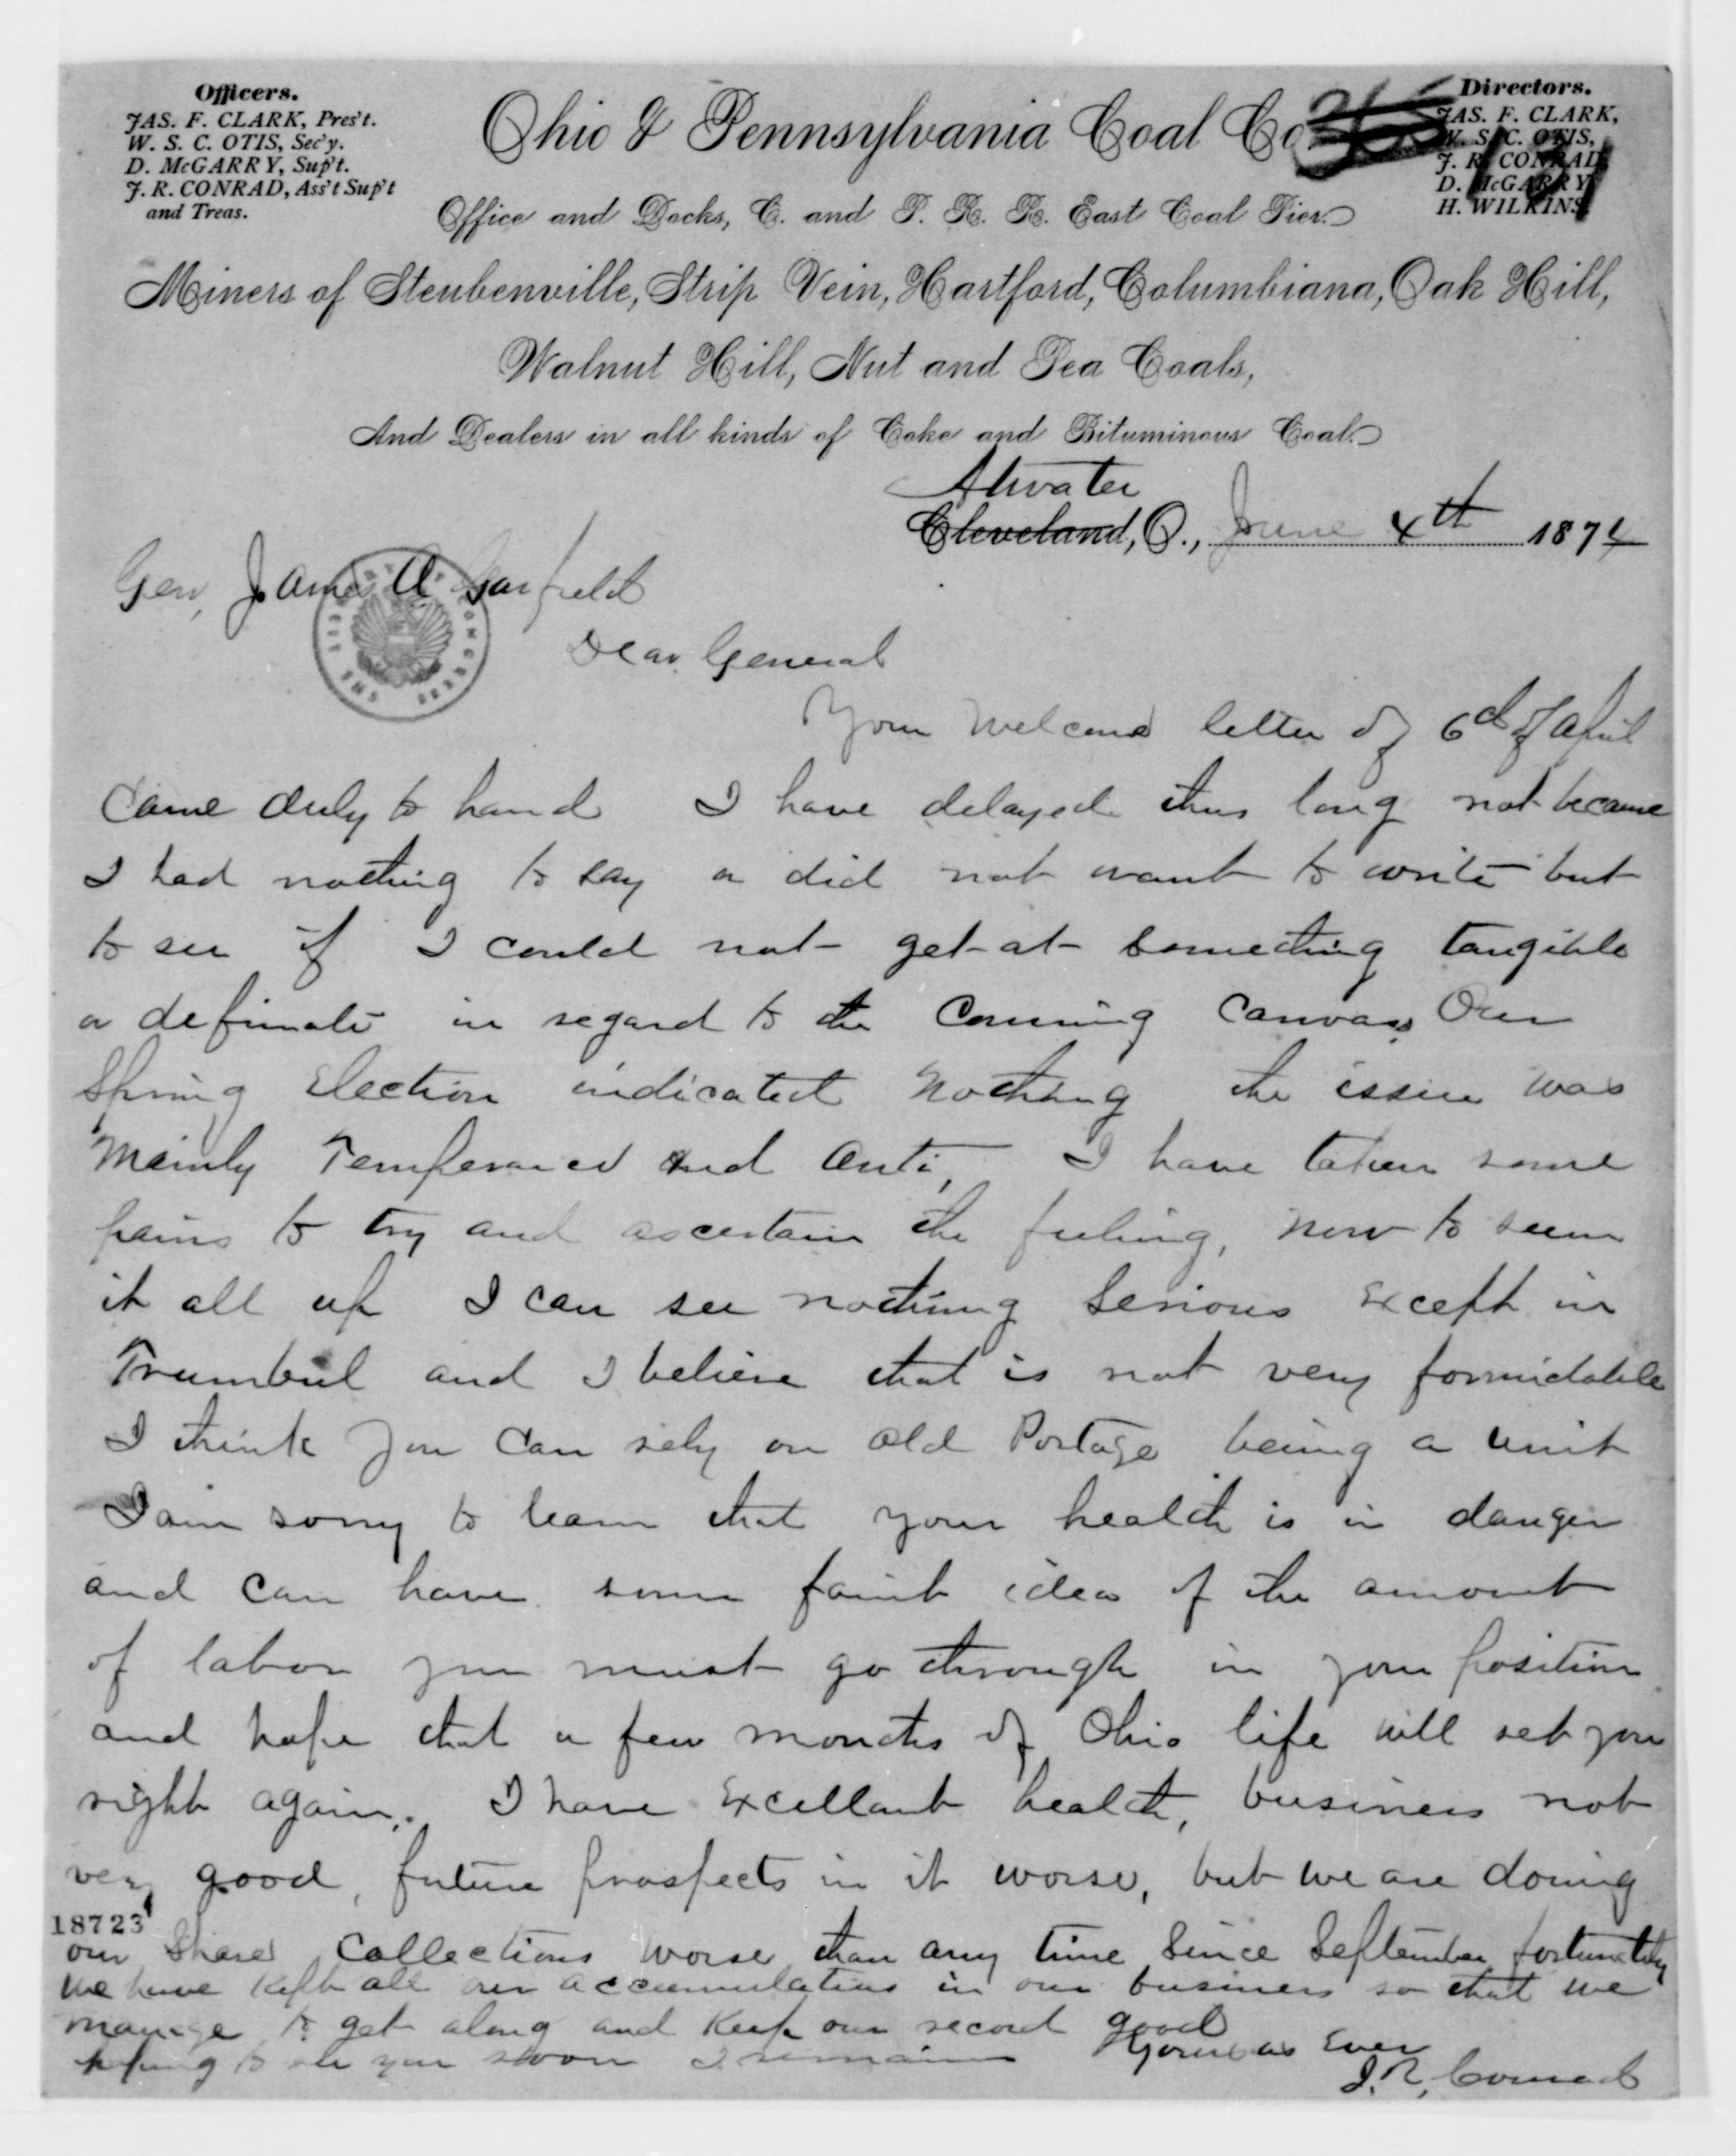 Officers.
JAS. F. CLARK, Pres't.
W. S. C. OTIS, Sec'y.
D. McGARRY, Sup't.
J. R. CONRAD, Ass't Sup't
and Treas.
Ohio & Pennsylvania Coal Co.
Directors.
JAS. F. CLARK,
W. S. C. OTIS,
J. R. CONRAD,
D. McGARRY,
H. WILKINS.
Office and Docks, C. and P. R. R. East Coal Pier.
Miners of Steubenville, Strip Vein, Hartford, Columbiana, Oak Hill,
Walnut Hill, Nut and Pea Coals,
And Dealers in all kinds of Coke and Bituminous Coal.
Atwater
Cleveland, O., June 4th 1874
Gen, James A Garfield
Dear General
Your welcome letter of 6d of April
Came duly to hand I have delayed thus long not because
I had nothing to say or did not want to write but
to see if I could not get at something tangible
or definate in regard to the Coming Canvass Our
Spring Election indicated Nothing the issue was
Mainly Temperance and Anti, I have taken some
pains to try and ascertain the feeling, now to summ
it all up I can see nothing Serious Except in
Trumbul and I believe that is not very formidable
I think you Can rely on old Portage being a unit
I am sorry to learn that your health is in danger
and Can have some faint idea of the amount
of labor you must go through in your position
and hope that a few months of Ohio life will set you
right again. I have Excellant health, business not
very good, future prospects in it worse, but we are doing
18723
our Share Collections worse than any time Since September fortunately
We have Kept all our accumulations in our business so that we
manage to get along and Keep our record good
hoping to see you soon I remain Yours as Ever
J. R. Conrad